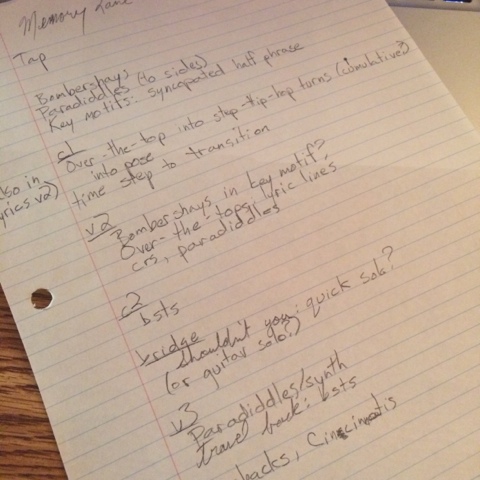 Memory Lane
Tap
Bombershays
Paradiddles (to sides)
Key motifs: syncopated half phrase
c1
Over-the-top into step-flip-hop turns (cumulative?)
into pose
time step to transition
lso in
yrics v2)
v2
Bombershays in key motif?
Over-the-tops, lyric lines
crs, paradiddles
c2
bsts
bridge
(shouldn't you: quick solo?
(or guitar solo?)
v3
Paradiddles/synth
travel back: bsts
backs, Cincinnatis